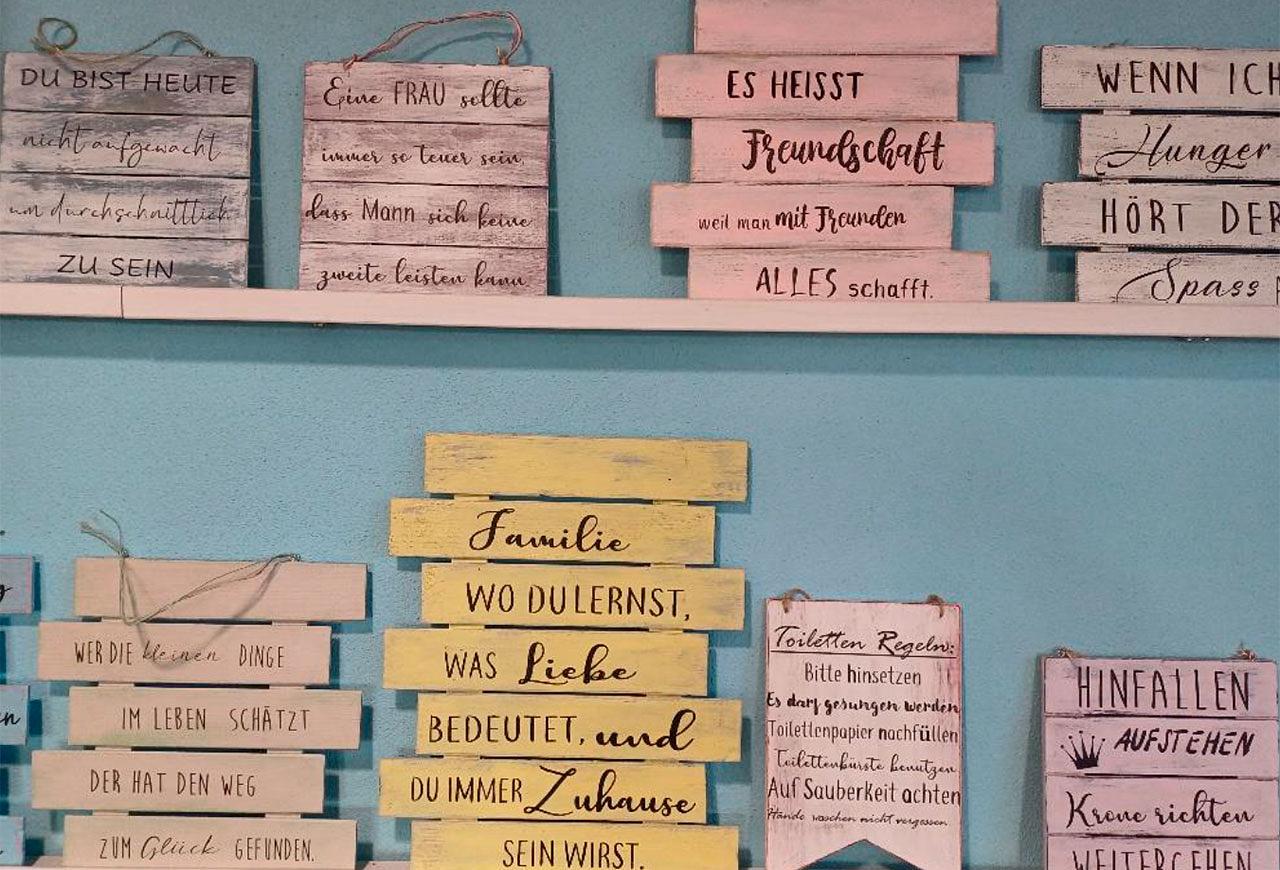 DU BIST HEUTE
nicht aufgewacht
um durchschnittlich
ZU SEIN
Eine FRAU sollte
immer so teuer sein,
dass Mann sich keine
zweite leisten kann.
ES HEISST
Freundschaft
weil man mit Freunden
ALLES schafft.
WENN ICH
Hunger
HÖRT DER
Spass
WER DIE kleinen DINGE
IM LEBEN SCHÄTZT
DER HAT DEN WEG
ZUM Glück GEFUNDEN.
Familie
WO DU LERNST,
WAS Liebe
BEDEUTET, und
DU IMMER Zuhause
SEIN WIRST.
Toiletten Regeln:
Bitte hinsetzen
Es darf gesungen werden
Toilettenpapier nachfüllen
Toilettenbürste benutzen
Auf Sauberkeit achten
Hände waschen nicht vergessen
HINFALLEN
AUFSTEHEN
Krone richten
WEITERGEHEN